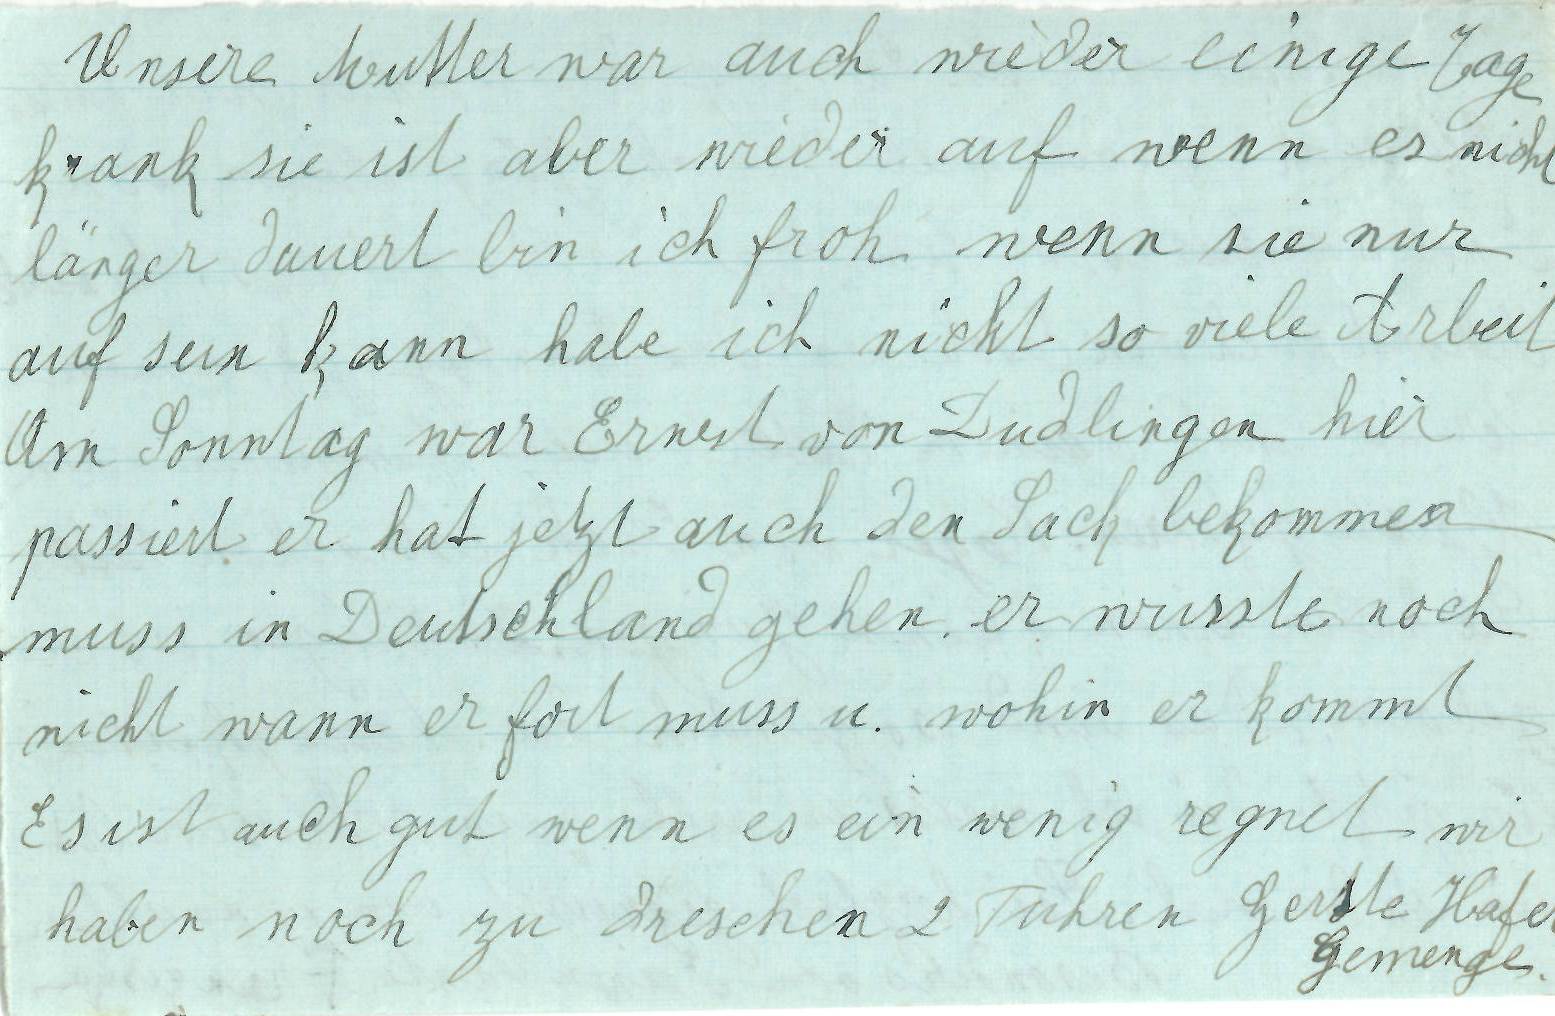 Unsere Mutter war auch wieder einige Tage
krank sie ist aber wieder auf wenn es nicht
länger dauert bin ich froh wenn sie nur
auf sein kann habe ich nicht so viele Arbeit
Am Sonntag war Ernest von Dudlingen hier
passiert er hat jetzt auch den Sack bekommen
muss in Deutschland gehen. er wusste noch
nicht wann er fort muss u. wohin er kommt
Es ist auch gut wenn es ein wenig regnet wir
haben noch zu dreschen 2 Fuhren Gerste Hafer
Gemenge.